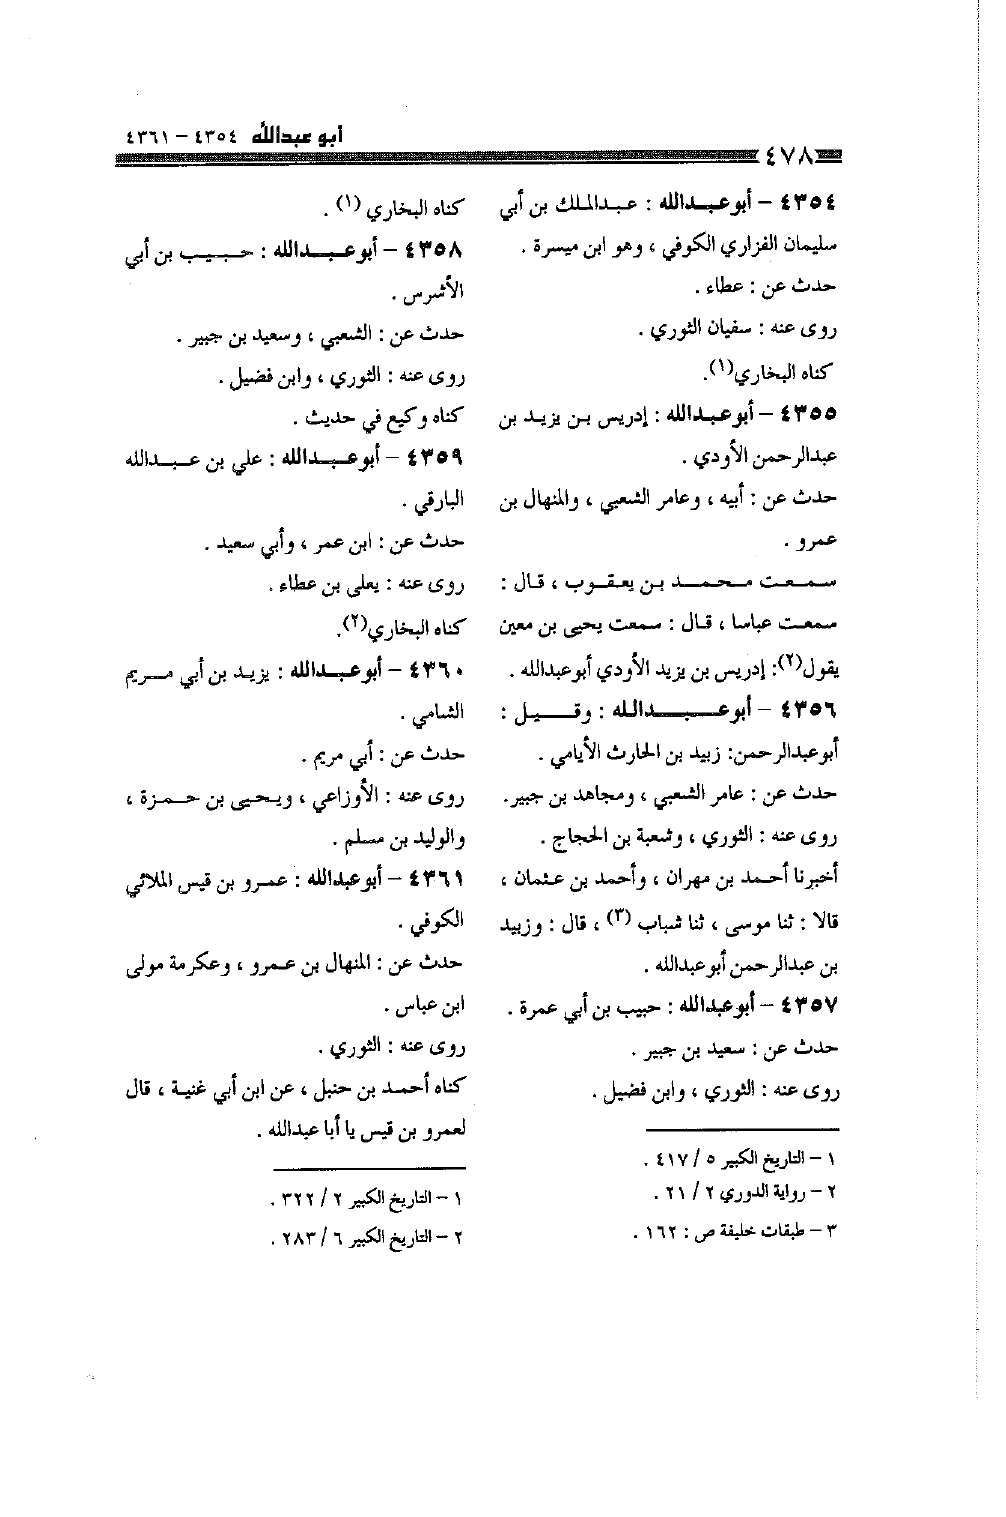 أبو عبدالله ٤٣٥٤ – ٤٣٦١
٤٧٨
٤٣٥٤ – أبوعبدالله : عبدالملك بن أبي
سليمان الفزاري الكوفي ، وهو ابن ميسرة .
حدث عن : عطاء .
روى عنه : سفيان الثوري .
كناه البخاري(١).
٤٣٥٥ – أبوعبدالله : إدريس بن يزيد بن
عبدالرحمن الأودي .
حدث عن : أبيه ، وعامر الشعبي ، والمنهال بن
عمرو .
سمعت محمد بن يعقوب ، قال :
سمعت عباسا ، قال : سمعت يحيى بن معين
يقول(٢): إدريس بن يزيد الأودي أبوعبدالله .
٤٣٥٦ – أبوعبدالله : وقيل :
أبوعبدالرحمن: زبيد بن الحارث الأيامي .
حدث عن : عامر الشعبي ، ومجاهد بن جبير.
روى عنه : الثوري ، وشعبة بن الحجاج .
أخبرنا أحمد بن مهران ، وأحمد بن عثمان ،
قالا : ثنا موسى ، ثنا شباب (٣) ، قال : وزبيد
بن عبدالرحمن أبوعبدالله .
٤٣٥٧ – أبوعبدالله : حبيب بن أبي عمرة .
حدث عن : سعيد بن جبير .
روى عنه : الثوري ، وابن فضيل .
١ – التاريخ الكبير ٥ / ٤١٧ .
٢ – رواية الدوري ٢ / ٢١ .
٣ – طبقات خليفة ص : ١٦٢ .
كناه البخاري (١) .
٤٣٥٨ – أبوعبدالله : حبيب بن أبي
الأشرس .
حدث عن : الشعبي ، وسعيد بن جبير .
روى عنه : الثوري ، وابن فضيل .
كناه وكيع في حديث .
٤٣٥٩ – أبوعبدالله : علي بن عبدالله
البارقي .
حدث عن : ابن عمر ، وأبي سعيد .
روى عنه : يعلى بن عطاء .
كناه البخاري(٢).
٤٣٦٠ – أبوعبدالله : يزيد بن أبي مريم
الشامي .
حدث عن : أبي مريم .
روى عنه : الأوزاعي ، ويحيى بن حمزة ،
والوليد بن مسلم .
٤٣٦١ – أبوعبدالله : عمرو بن قيس الملائي
الكوفي .
حدث عن : المنهال بن عمرو ، وعكرمة مولى
ابن عباس .
روى عنه : الثوري .
كناه أحمد بن حنبل ، عن ابن أبي غنية ، قال
لعمرو بن قيس يا أبا عبدالله .
١ – التاريخ الكبير ٢ / ٣٢٢ .
٢ – التاريخ الكبير ٦ / ٢٨٣ .